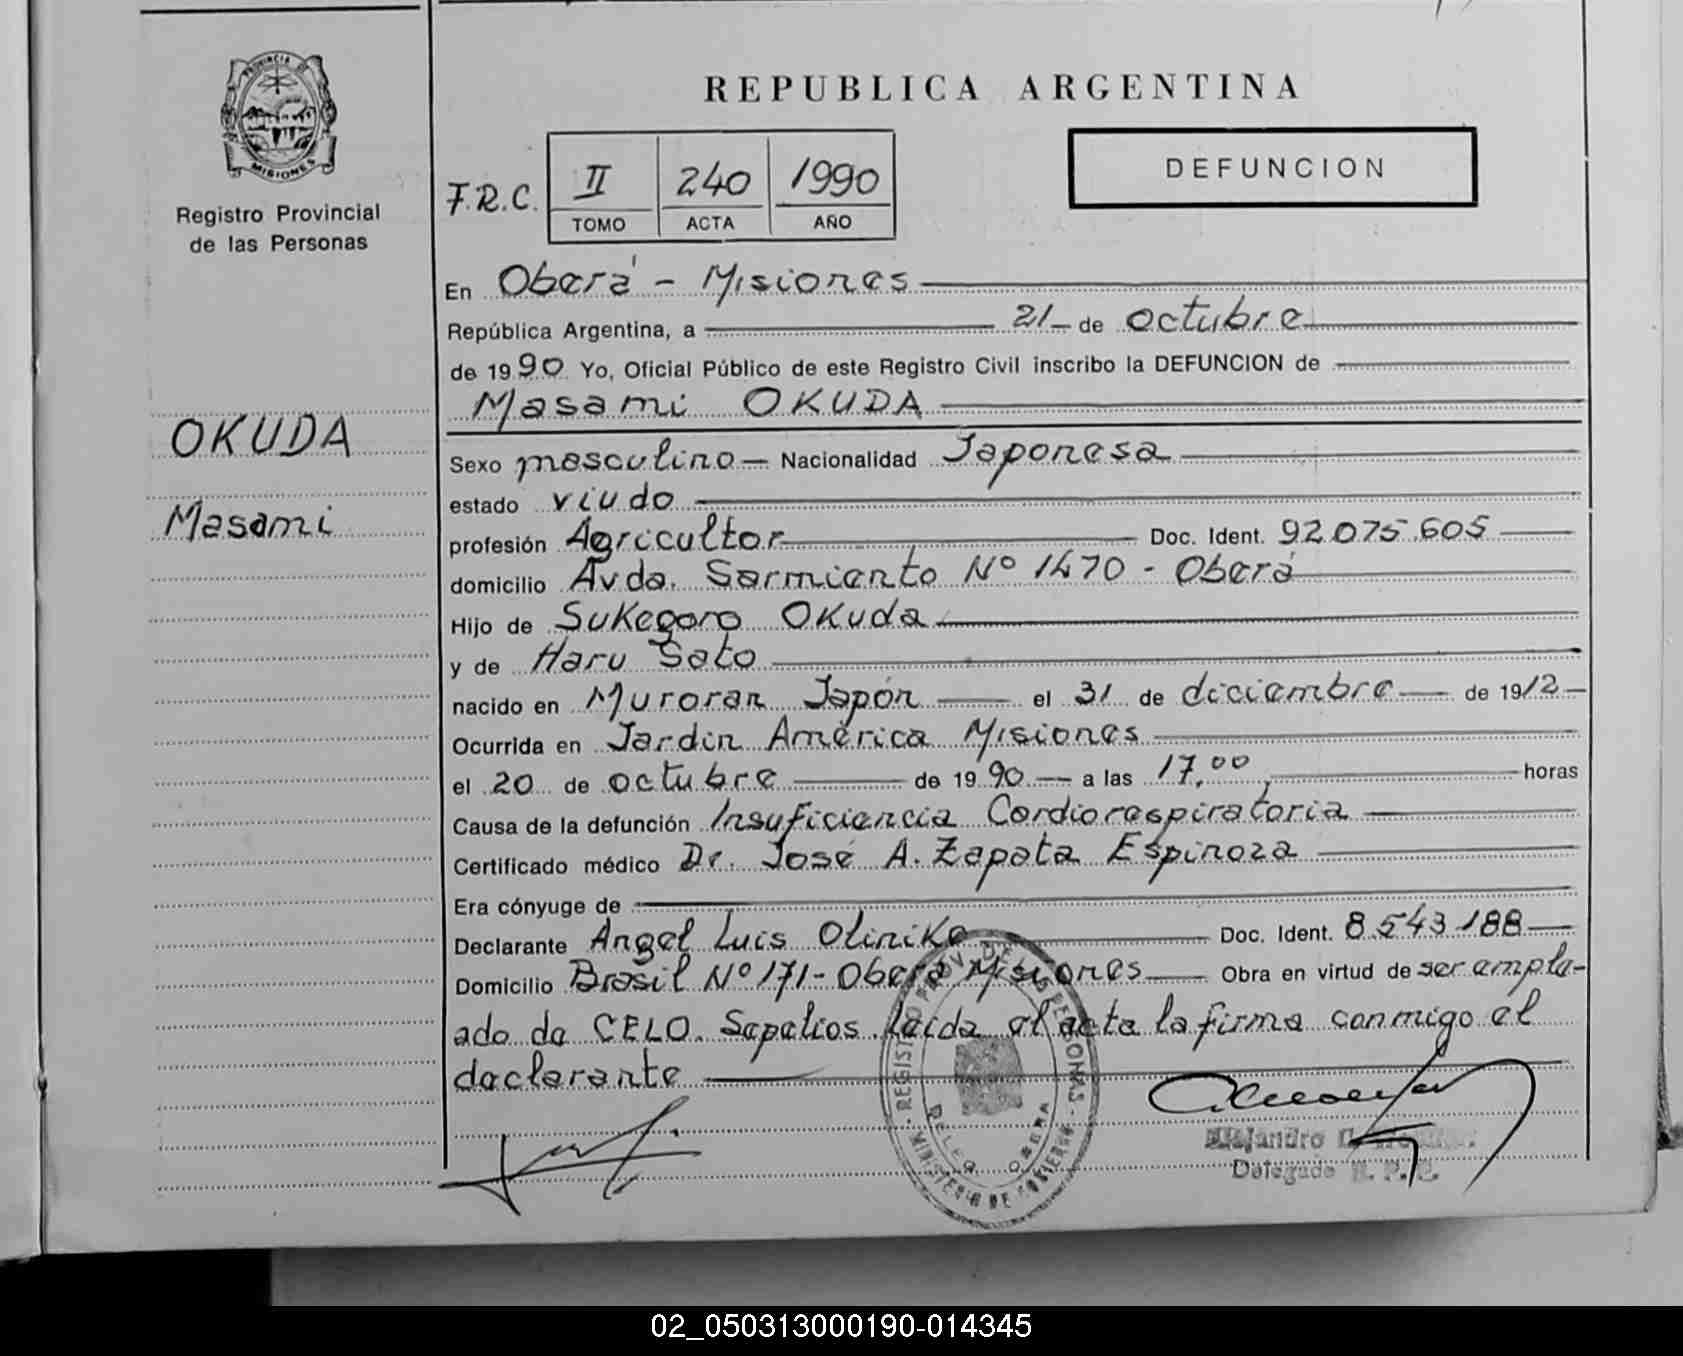 REPUBLICA ARGENTINA
PROVINCIA DE
MISIONES
Registro Provincial
de las Personas
DEFUNCION
F.R.C. II 240 1990
TOMO ACTA AÑO
En Oberá - Misiones
República Argentina, a 21 de octubre
de 1990 Yo, Oficial Público de este Registro Civil inscribo la DEFUNCION de
Masami OKUDA
OKUDA
Masami
Sexo masculino Nacionalidad Japonesa
estado viudo
profesión Agricultor Doc. Ident. 92.075.605
domicilio Avda. Sarmiento Nº 1470 - Oberá
Hijo de Sukegoro Okuda
y de Haru Sato
nacido en Muroran Japón el 31 de diciembre de 1912
Ocurrida en Jardin América Misiones
el 20 de octubre de 1990 a las 17,00 horas
Causa de la defunción Insuficiencia Cardiorespiratoria
Certificado médico Dr. José A. Zapata Espinoza
Era cónyuge de
Declarante Angel Luis Olinike Doc. Ident. 8.543.188
Domicilio Brasil Nº 171 - Oberá Misiones Obra en virtud de ser emple-
ado de CELO. Sepelios. Leida el acta la firma conmigo el
declarante
REGISTRO PROV. DE LAS PERSONAS
MINISTERIO DE GOBIERNO
DELEG. OBERA
Alejandro
Delegado R. P. P.
02_050313000190-014345